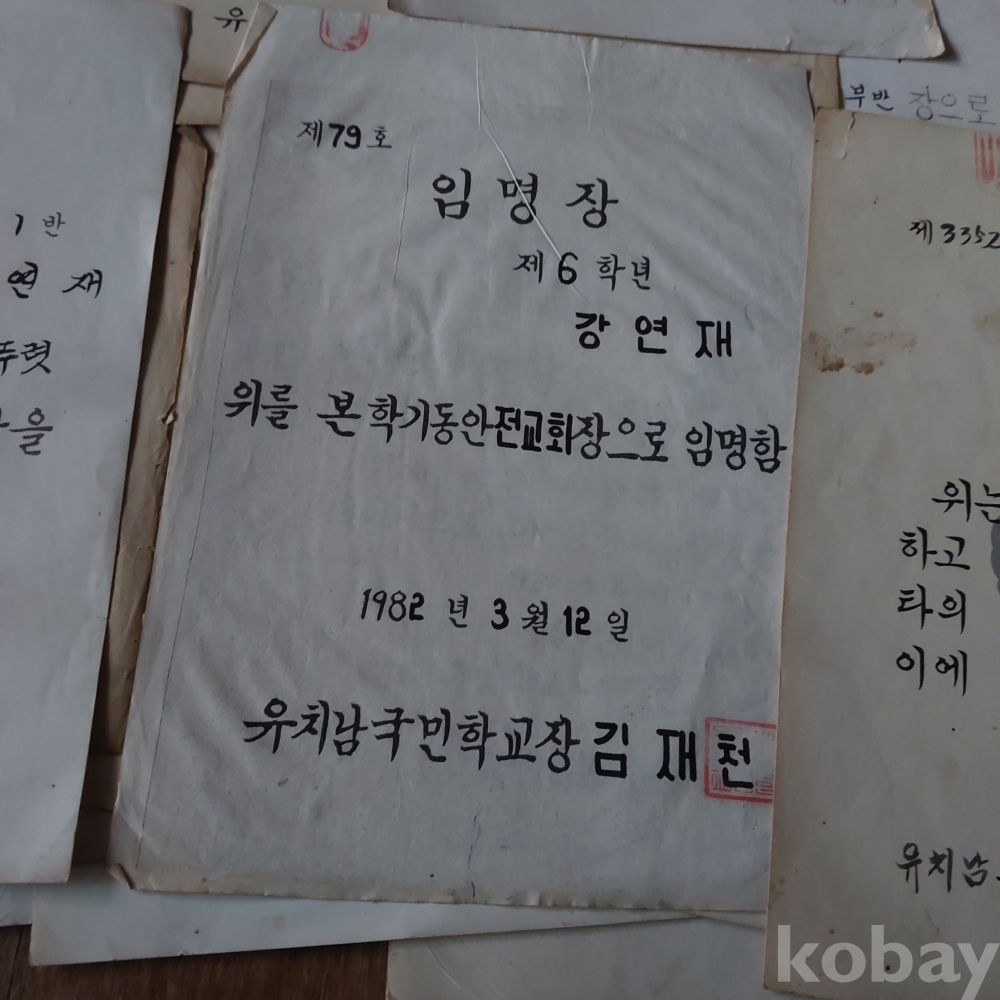 유
부반 장으로
1 반
연 재
뚜렷
을
제79호
임 명 장
제 6 학년
강 연 재
위를 본 학기동안전교회장으로 임명함
1982 년 3 월 12 일
유치남국민학교장 김 재 천
제3352
위는
하고
타의
이에
유치남
kobay